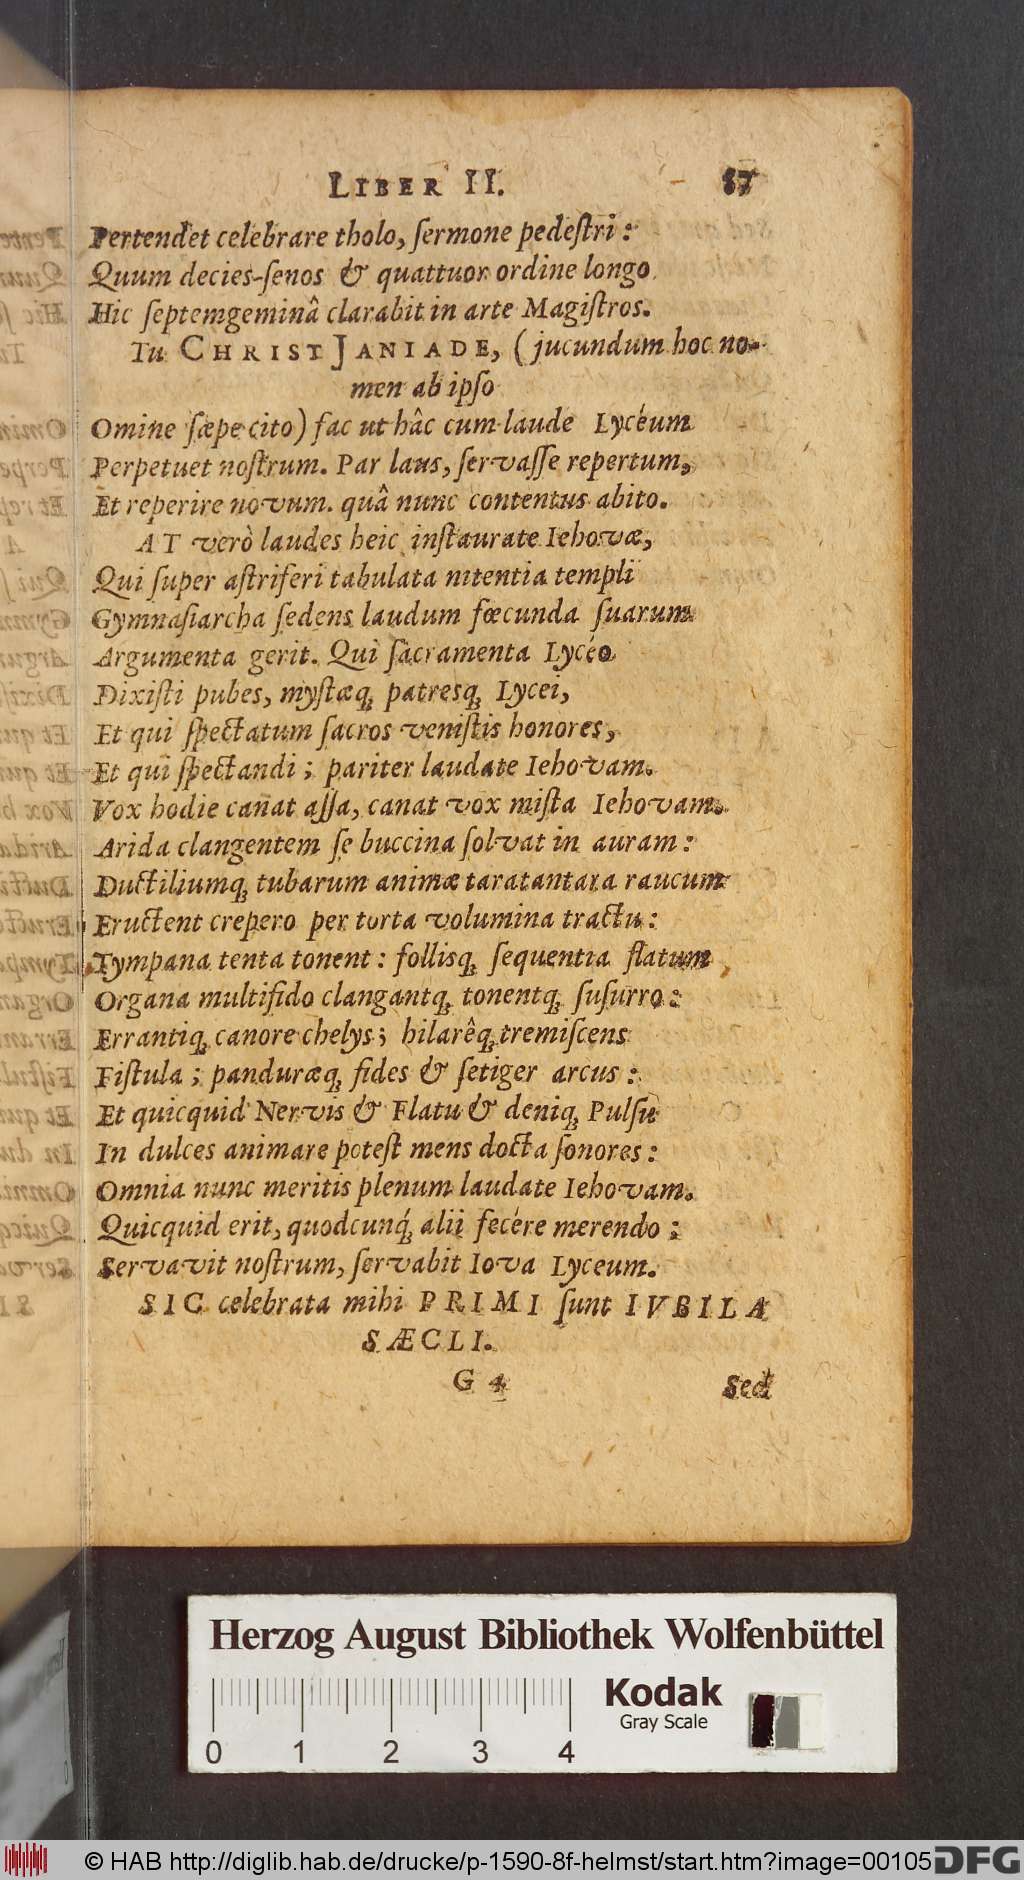 LIBER II. 87
Pertendet celebrare tholo, ſermone pedeſtri:
Quum decies-ſenos & quattuor ordine longo
Hic ſeptemgeminâ clarabit in arte Magiſtros.
Tu CHRIST JANIADE, (jucundum hoc no-
men ab ipſo
Omine ſæpe cito) fac ut hâc cum laude Lycéum
Perpetuet noſtrum. Par laus, ſervaſſe repertum,
Et reperire novum. quâ nunc contentus abito.
AT verò laudes heic inſtaurate Iehovæ,
Qui ſuper aſtriferi tabulata nitentia templi
Gymnaſiarcha ſedens laudum fœcunda ſuarum
Argumenta gerit. Qui ſacramenta Lycéo
Dixiſti pubes, myſtæq́; patresq́; Lycei,
Et qui ſpectatum ſacros veniſtis honores,
Et qui ſpectandi; pariter laudate Iehovam.
Vox hodie canat aſſa, canat vox miſta Iehovam.
Arida clangentem ſe buccina ſolvat in auram:
Ductiliumq́; tubarum animæ taratantara raucum
Eructent crepero per torta volumina tractu:
Tympana tenta tonent: follisq́; ſequentia flatum
Organa multifido clangantq́; tonentq́; ſuſurro:
Errantiq́; canore chelys; hilarêq́; tremiſcens
Fiſtula; panduræq́; fides & ſetiger arcus:
Et quicquid Nervis & Flatu & deniq́; Pulſu
In dulces animare poteſt mens docta ſonores:
Omnia nunc meritis plenum laudate Iehovam.
Quicquid erit, quodcunq́; alii fecére merendo;
Servavit noſtrum, ſervabit Iova Lyceum.
SIC celebrata mihi PRIMI ſunt IVBILA
SÆCLI.
G 4 Sed
Herzog August Bibliothek Wolfenbüttel
Kodak
Gray Scale
0 1 2 3 4
© HAB http://diglib.hab.de/drucke/p-1590-8f-helmst/start.htm?image=00105
DFG